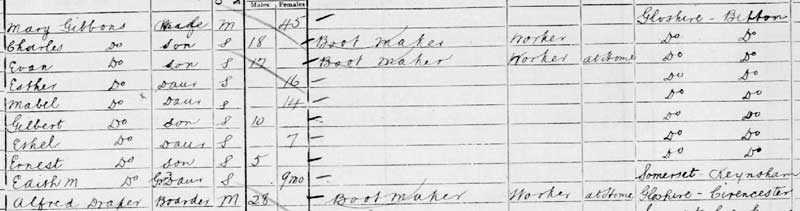 Males Females
Mary Gibbons Head M 45 — Gloshire - Bitton
Charles Do Son S 18 — Boot Maker Worker Do Do
Evan Do Son S 17 — Boot Maker Worker at Home Do Do
Esther Do Daur S 16 — Do Do
Mabel Do Daur S 14 — Do Do
Gilbert Do Son S 10 — Do Do
Ethel Do Daur S 7 — Do Do
Ernest Do Son S 5 — Do Do
Edith M Do Gd Daur S 9mo — Somerset - Keynsham
Alfred Draper Boarder M 28 — Boot Maker Worker at Home Gloshire - Cirencester